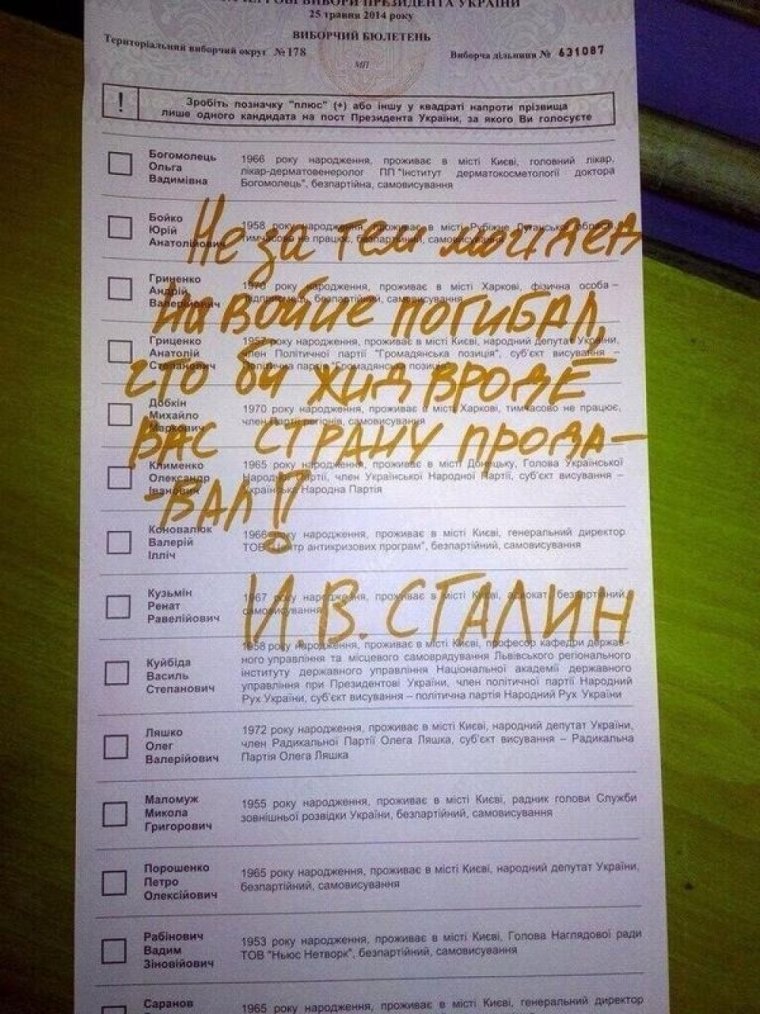 ВИБОРИ ПРЕЗИДЕНТА УКРАЇНИ
25 травня 2014 року
ВИБОРЧИЙ БЮЛЕТЕНЬ
Територіальний виборчий округ №178
Виборча дільниця № 631087
МП
! Зробіть позначку "плюс" (+) або іншу у квадраті напроти прізвища
лише одного кандидата на пост Президента України, за якого Ви голосуєте
Богомолець
Ольга
Вадимівна
1966 року народження, проживає в місті Києві, головний лікар,
лікар-дерматовенеролог ПП "Інститут дерматокосметології доктора
Богомолець", безпартійна, самовисування
Бойко
Юрій
Анатолійович
1958 року народження, проживає в місті Рубіжне Луганської області,
тимчасово не працює, безпартійний, самовисування
Гриненко
Андрій
Валерійович
1970 року народження, проживає в місті Харкові, фізична особа –
підприємець, безпартійний, самовисування
Гриценко
Анатолій
Степанович
1957 року народження, проживає в місті Києві, народний депутат України,
член Політичної партії "Громадянська позиція", суб'єкт висування –
Політична партія "Громадянська позиція"
Добкін
Михайло
Маркович
1970 року народження, проживає в місті Харкові, тимчасово не працює,
член Партії регіонів, самовисування
Клименко
Олександр
Іванович
1965 року народження, проживає в місті Донецьку, Голова Української
Народної Партії, член Української Народної Партії, суб'єкт висування –
Українська Народна Партія
Коновалюк
Валерій
Ілліч
1966 року народження, проживає в місті Києві, генеральний директор
ТОВ "Центр антикризових програм", безпартійний, самовисування
Кузьмін
Ренат
Равелійович
1967 року народження, проживає в місті Києві, адвокат, безпартійний,
самовисування
Куйбіда
Василь
Степанович
1958 року народження, проживає в місті Києві, професор кафедри держав-
ного управління та місцевого самоврядування Львівського регіонального
інституту державного управління Національної академії державного
управління при Президентові України, член політичної партії Народний
Рух України, суб'єкт висування – політична партія Народний Рух України
Ляшко
Олег
Валерійович
1972 року народження, проживає в місті Києві, народний депутат України,
член Радикальної Партії Олега Ляшка, суб'єкт висування – Радикальна
Партія Олега Ляшка
Маломуж
Микола
Григорович
1955 року народження, проживає в місті Києві, радник голови Служби
зовнішньої розвідки України, безпартійний, самовисування
Порошенко
Петро
Олексійович
1965 року народження, проживає в місті Києві, народний депутат України,
безпартійний, самовисування
Рабінович
Вадим
Зіновійович
1953 року народження, проживає в місті Києві, Голова Наглядової ради
ТОВ "Ньюс Нетворк", безпартійний, самовисування
Саранов
1965 року народження, проживає в місті Києві, генеральний директор
Не за тем мой дед
на войне погибал,
что би жид вроде
вас страну прода-
вал!
И.В. СТАЛИН